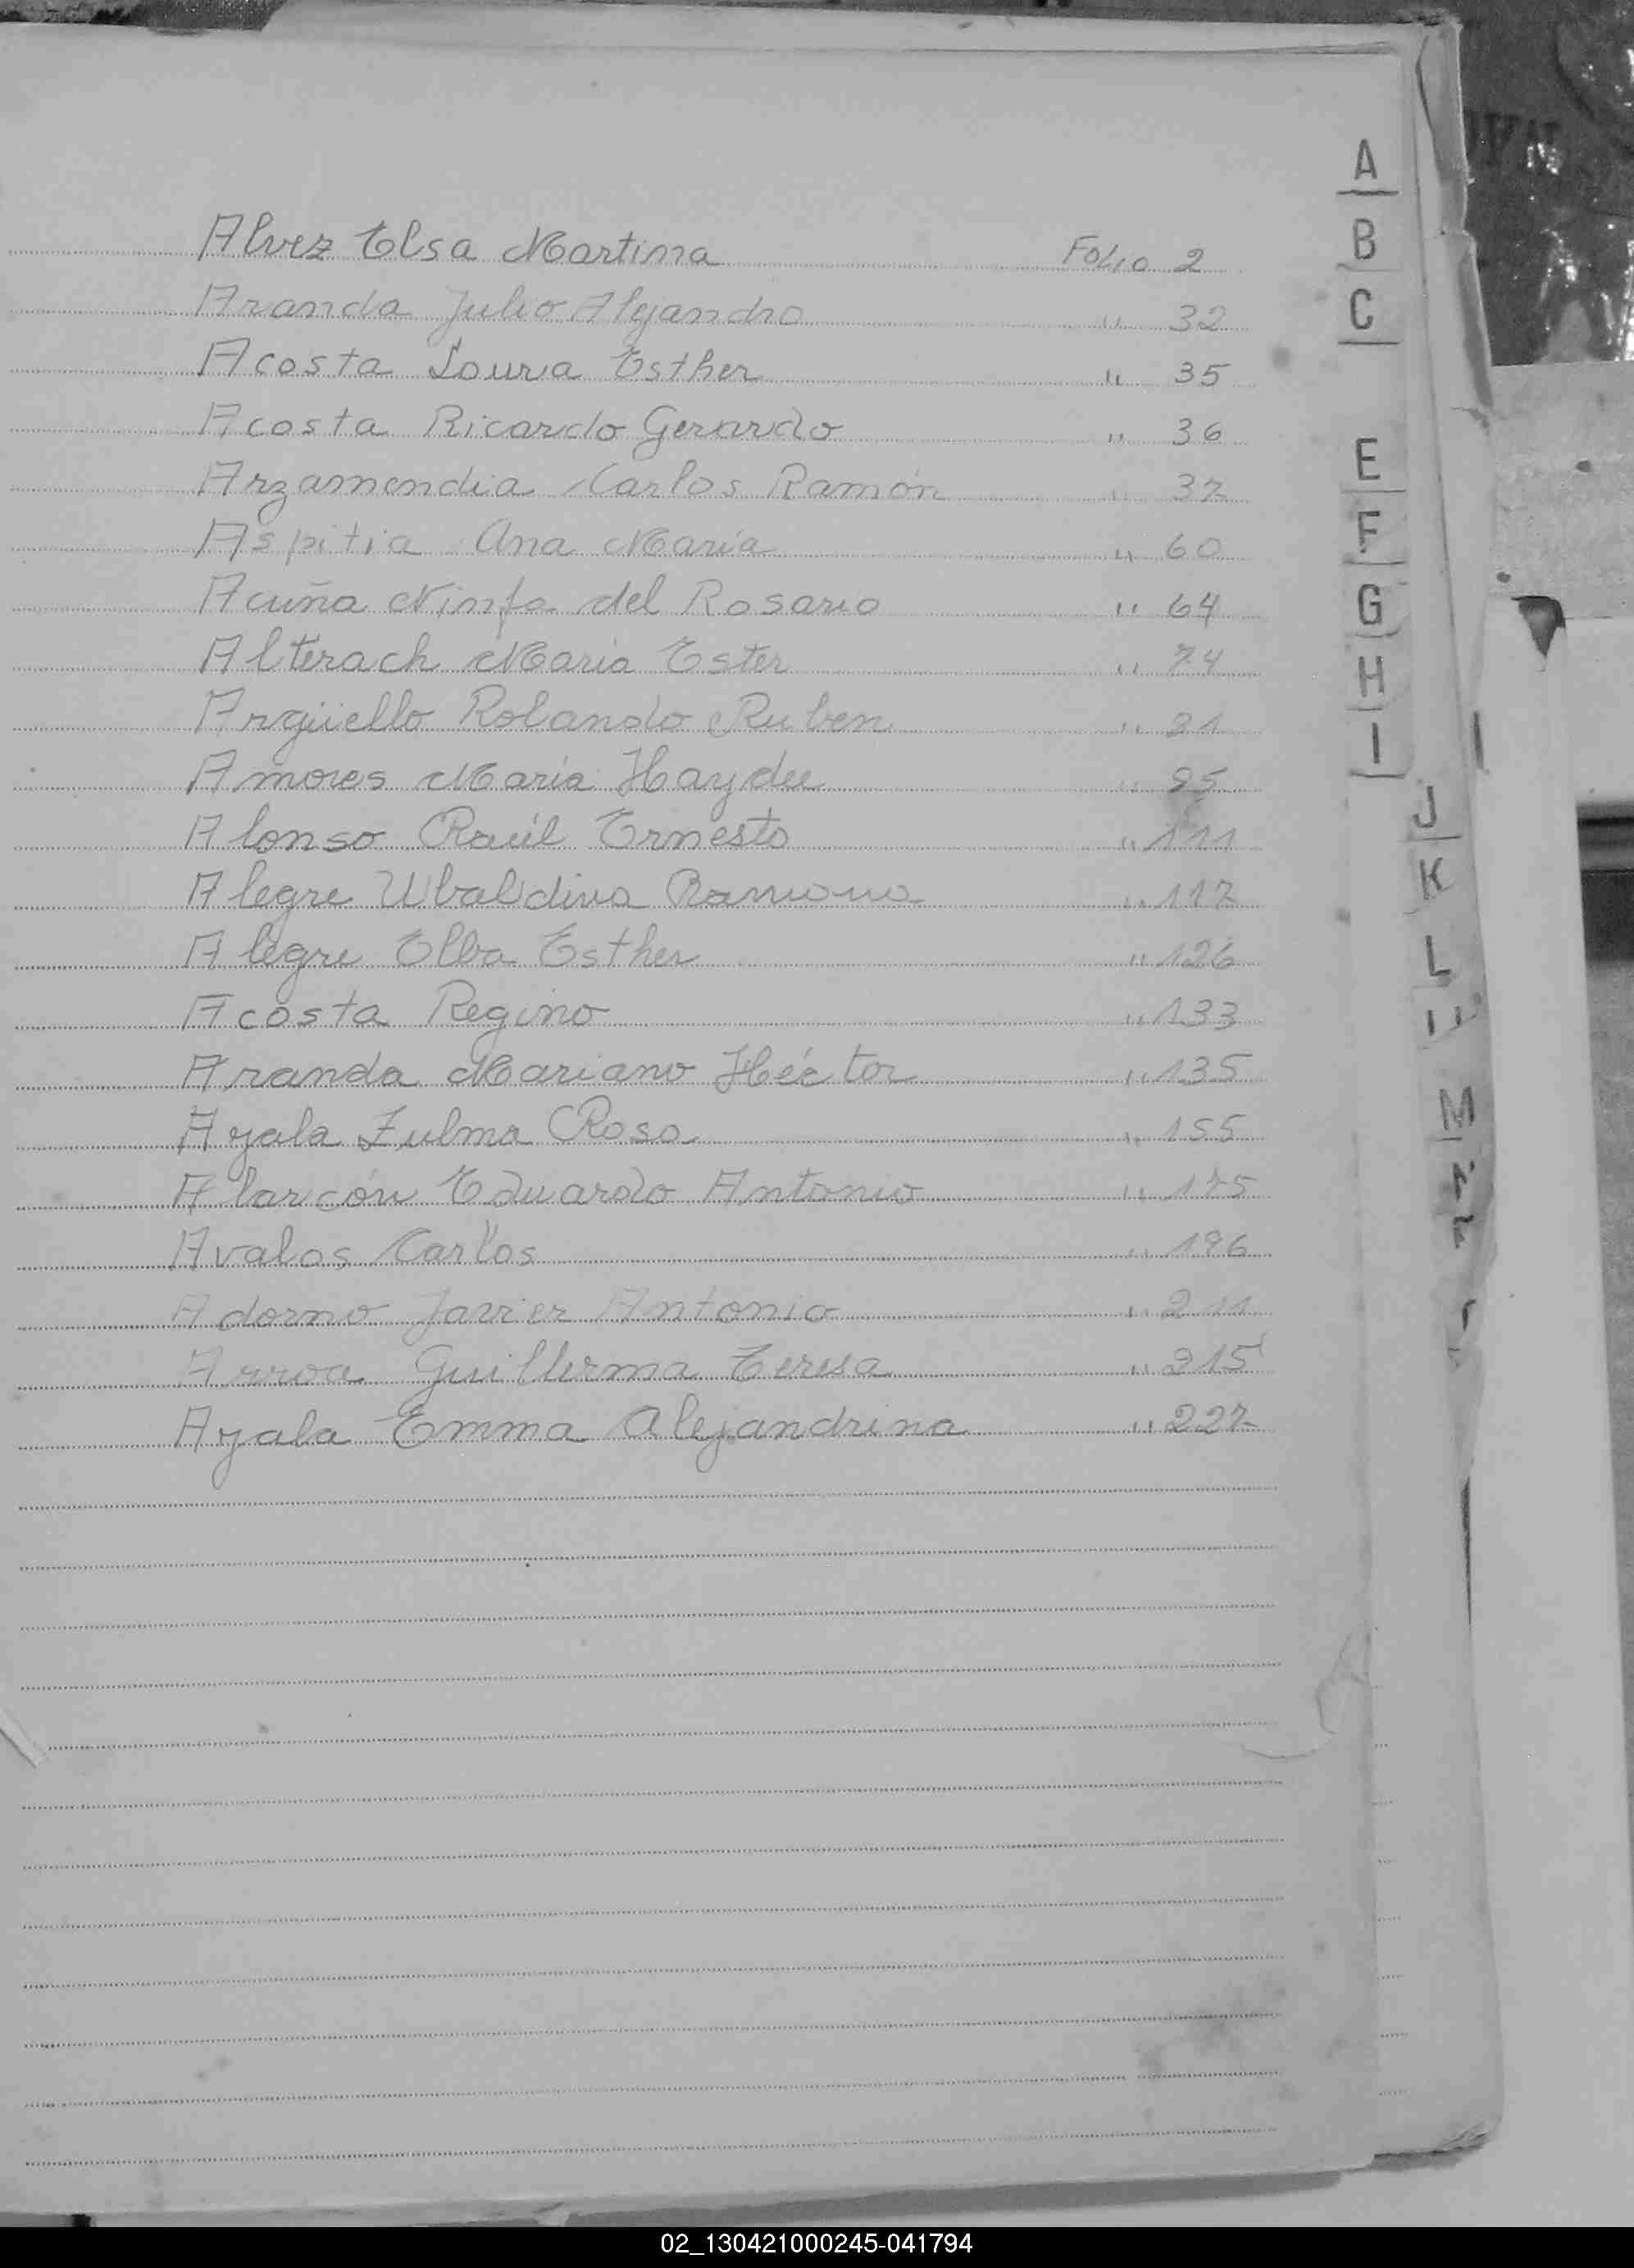 Alvez Elsa Martina Folio 2
Aranda Julio Alejandro " 32
Acosta Laura Esther " 35
Acosta Ricardo Gerardo " 36
Arzamendia Carlos Ramón " 37
Aspitia Ana María " 60
Acuña Ninfa del Rosario " 64
Alterach María Ester " 74
Argüello Rolando Ruben "
Amores María Haydee "
Alonso Raúl Ernesto " 111
Alegre Ubaldina Ramona " 117
Alegre Elba Esther " 126
Acosta Regino " 133
Aranda Mariano Héctor " 135
Ayala Zulma Rosa " 155
Alarcón Eduardo Antonio " 175
Avalos Carlos " 196
Adorno Javier Antonio " 211
Guillerma Teresa " 215
Ayala Emma Alejandrina " 227
A
B
C
E
F
G
H
I
J
K
L
M
02_130421000245-041794